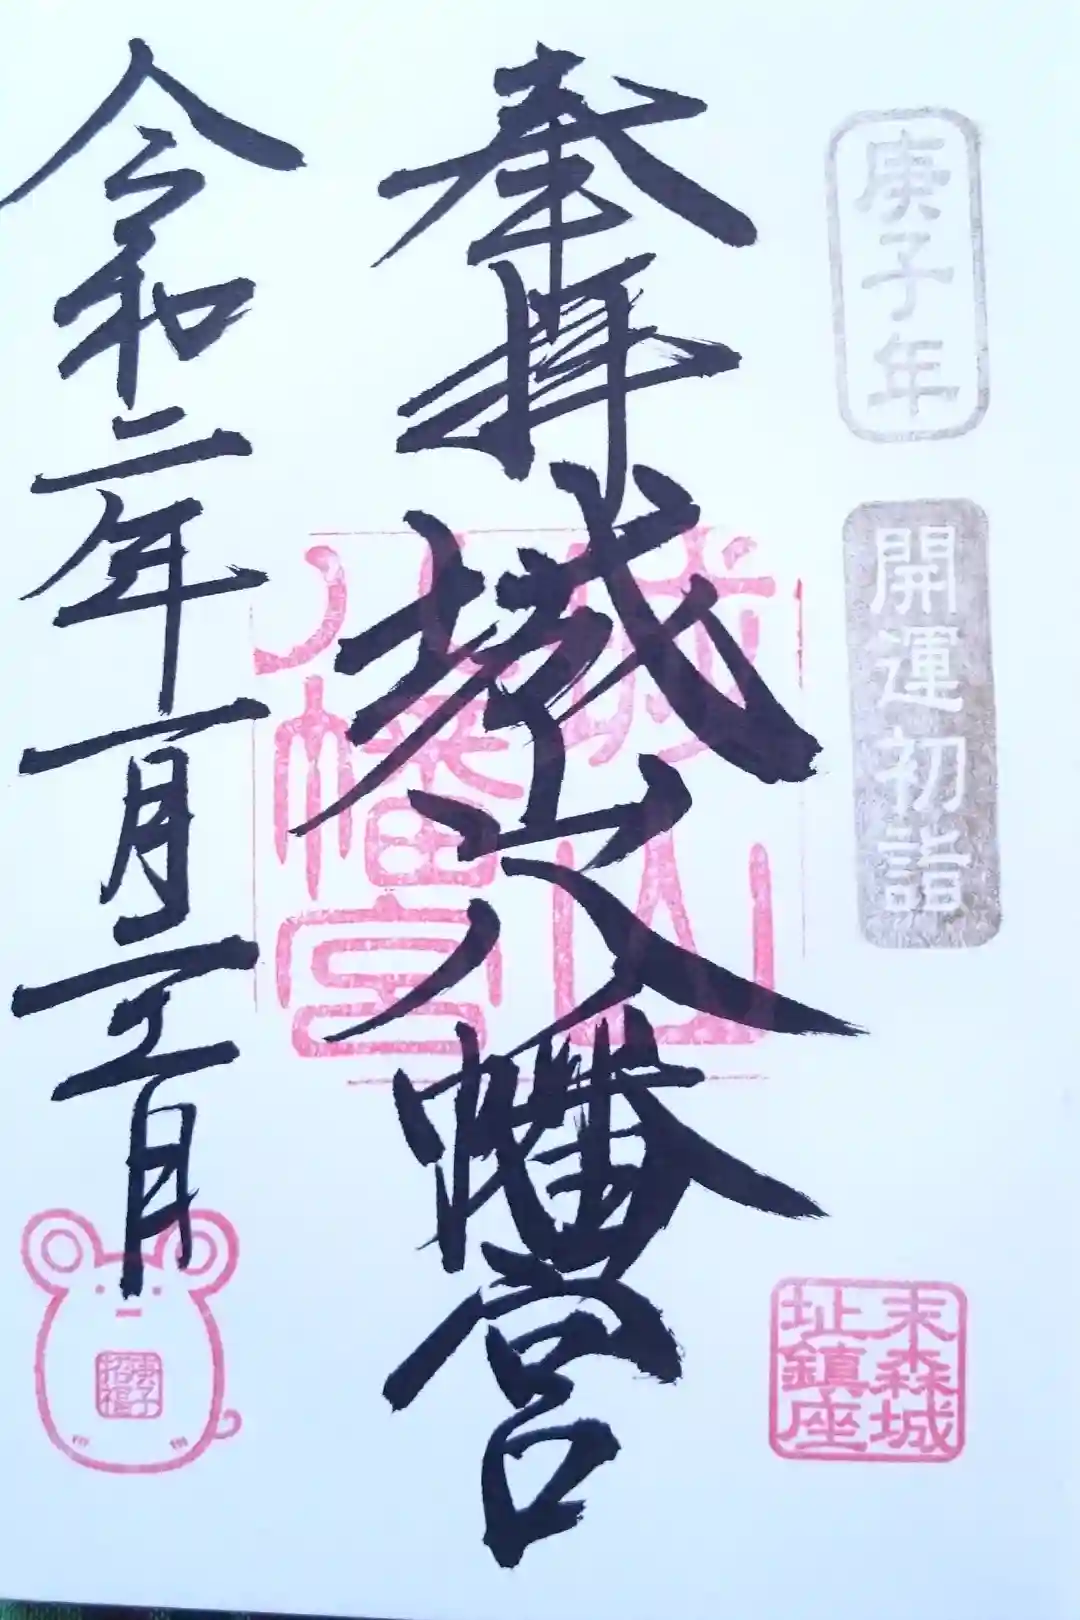 庚子年
開運初詣
末森城
址鎮座
奉拝 城山八幡宮
城山
八幡宮
令和二年一月三日
庚子
招福